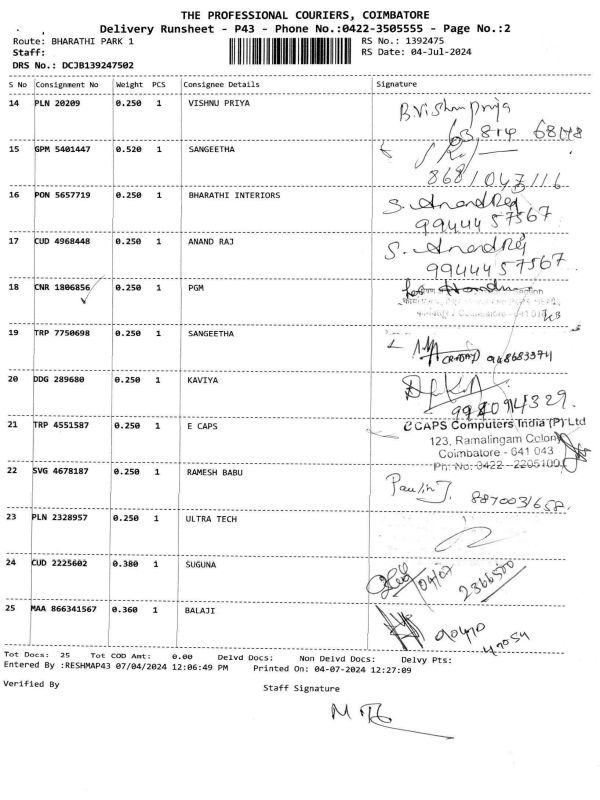 THE PROFESSIONAL COURIERS, COIMBATORE
Delivery Runsheet - P43 - Phone No.:0422-3505555 - Page No.:2
Route: BHARATHI PARK 1 RS No.: 1392475
Staff: RS Date: 04-Jul-2024
DRS No.: DCJB139247502
S No Consignment No Weight PCS Consignee Details Signature
14 PLN 20209 0.250 1 VISHNU PRIYA B.Vishnu Priya
15 GPM 5401447 0.520 1 SANGEETHA
8681047116
16 PON 5657719 0.250 1 BHARATHI INTERIORS S. Anand Raj
9944457567
17 CUD 4968448 0.250 1 ANAND RAJ S. Anand Raj
9944457567
18 CNR 1806856 0.250 1 PGM
19 TRP 7750698 0.250 1 SANGEETHA
20 DDG 289680 0.250 1 KAVIYA
21 TRP 4551587 0.250 1 E CAPS eCAPS Computers India (P) Ltd
123, Ramalingam Colony
Coimbatore - 641 043
Ph: No: 0422 - 2205100
22 SVG 4678187 0.250 1 RAMESH BABU Paulin J. 8870031658.
23 PLN 2328957 0.250 1 ULTRA TECH
24 CUD 2225602 0.380 1 SUGUNA 04/07 2366500
25 MAA 866341567 0.360 1 BALAJI
Tot Docs: 25 Tot COD Amt: 0.00 Delvd Docs: Non Delvd Docs: Delvy Pts:
Entered By :RESHMAP43 07/04/2024 12:06:49 PM Printed On: 04-07-2024 12:27:09
Verified By Staff Signature